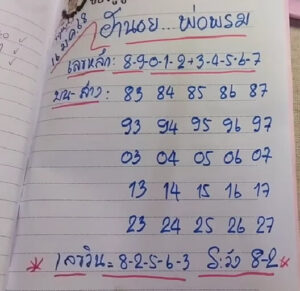 16 ม.ค. 68
ฮานอย... พ่อพรม
เลขหลัก: 8-9-0-1-2+3-4-5-6-7
บน-ล่าง: 83 84 85 86 87
93 94 95 96 97
03 04 05 06 07
13 14 15 16 17
23 24 25 26 27
* เลขวิน = 8-2-5-6-3 ระวัง 8-2 *